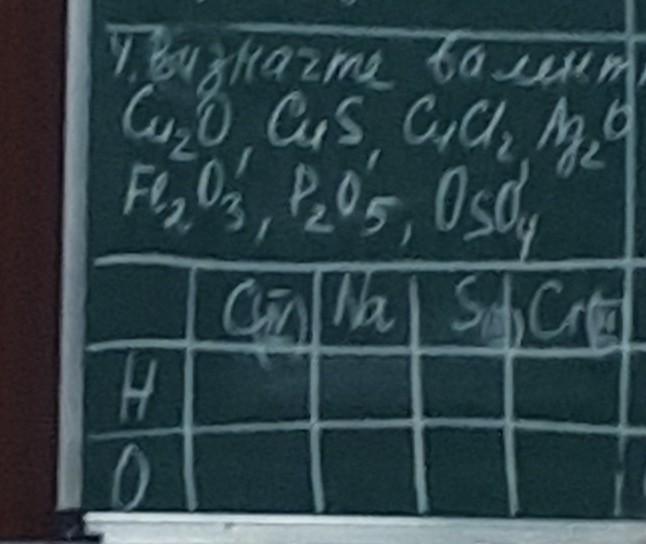 1. Визначте валент
Cu₂O, CuS, CuCl₂, Ag₂O
Fe₂O₃, P₂O₅, OsO₄
Na S Cr
H
O